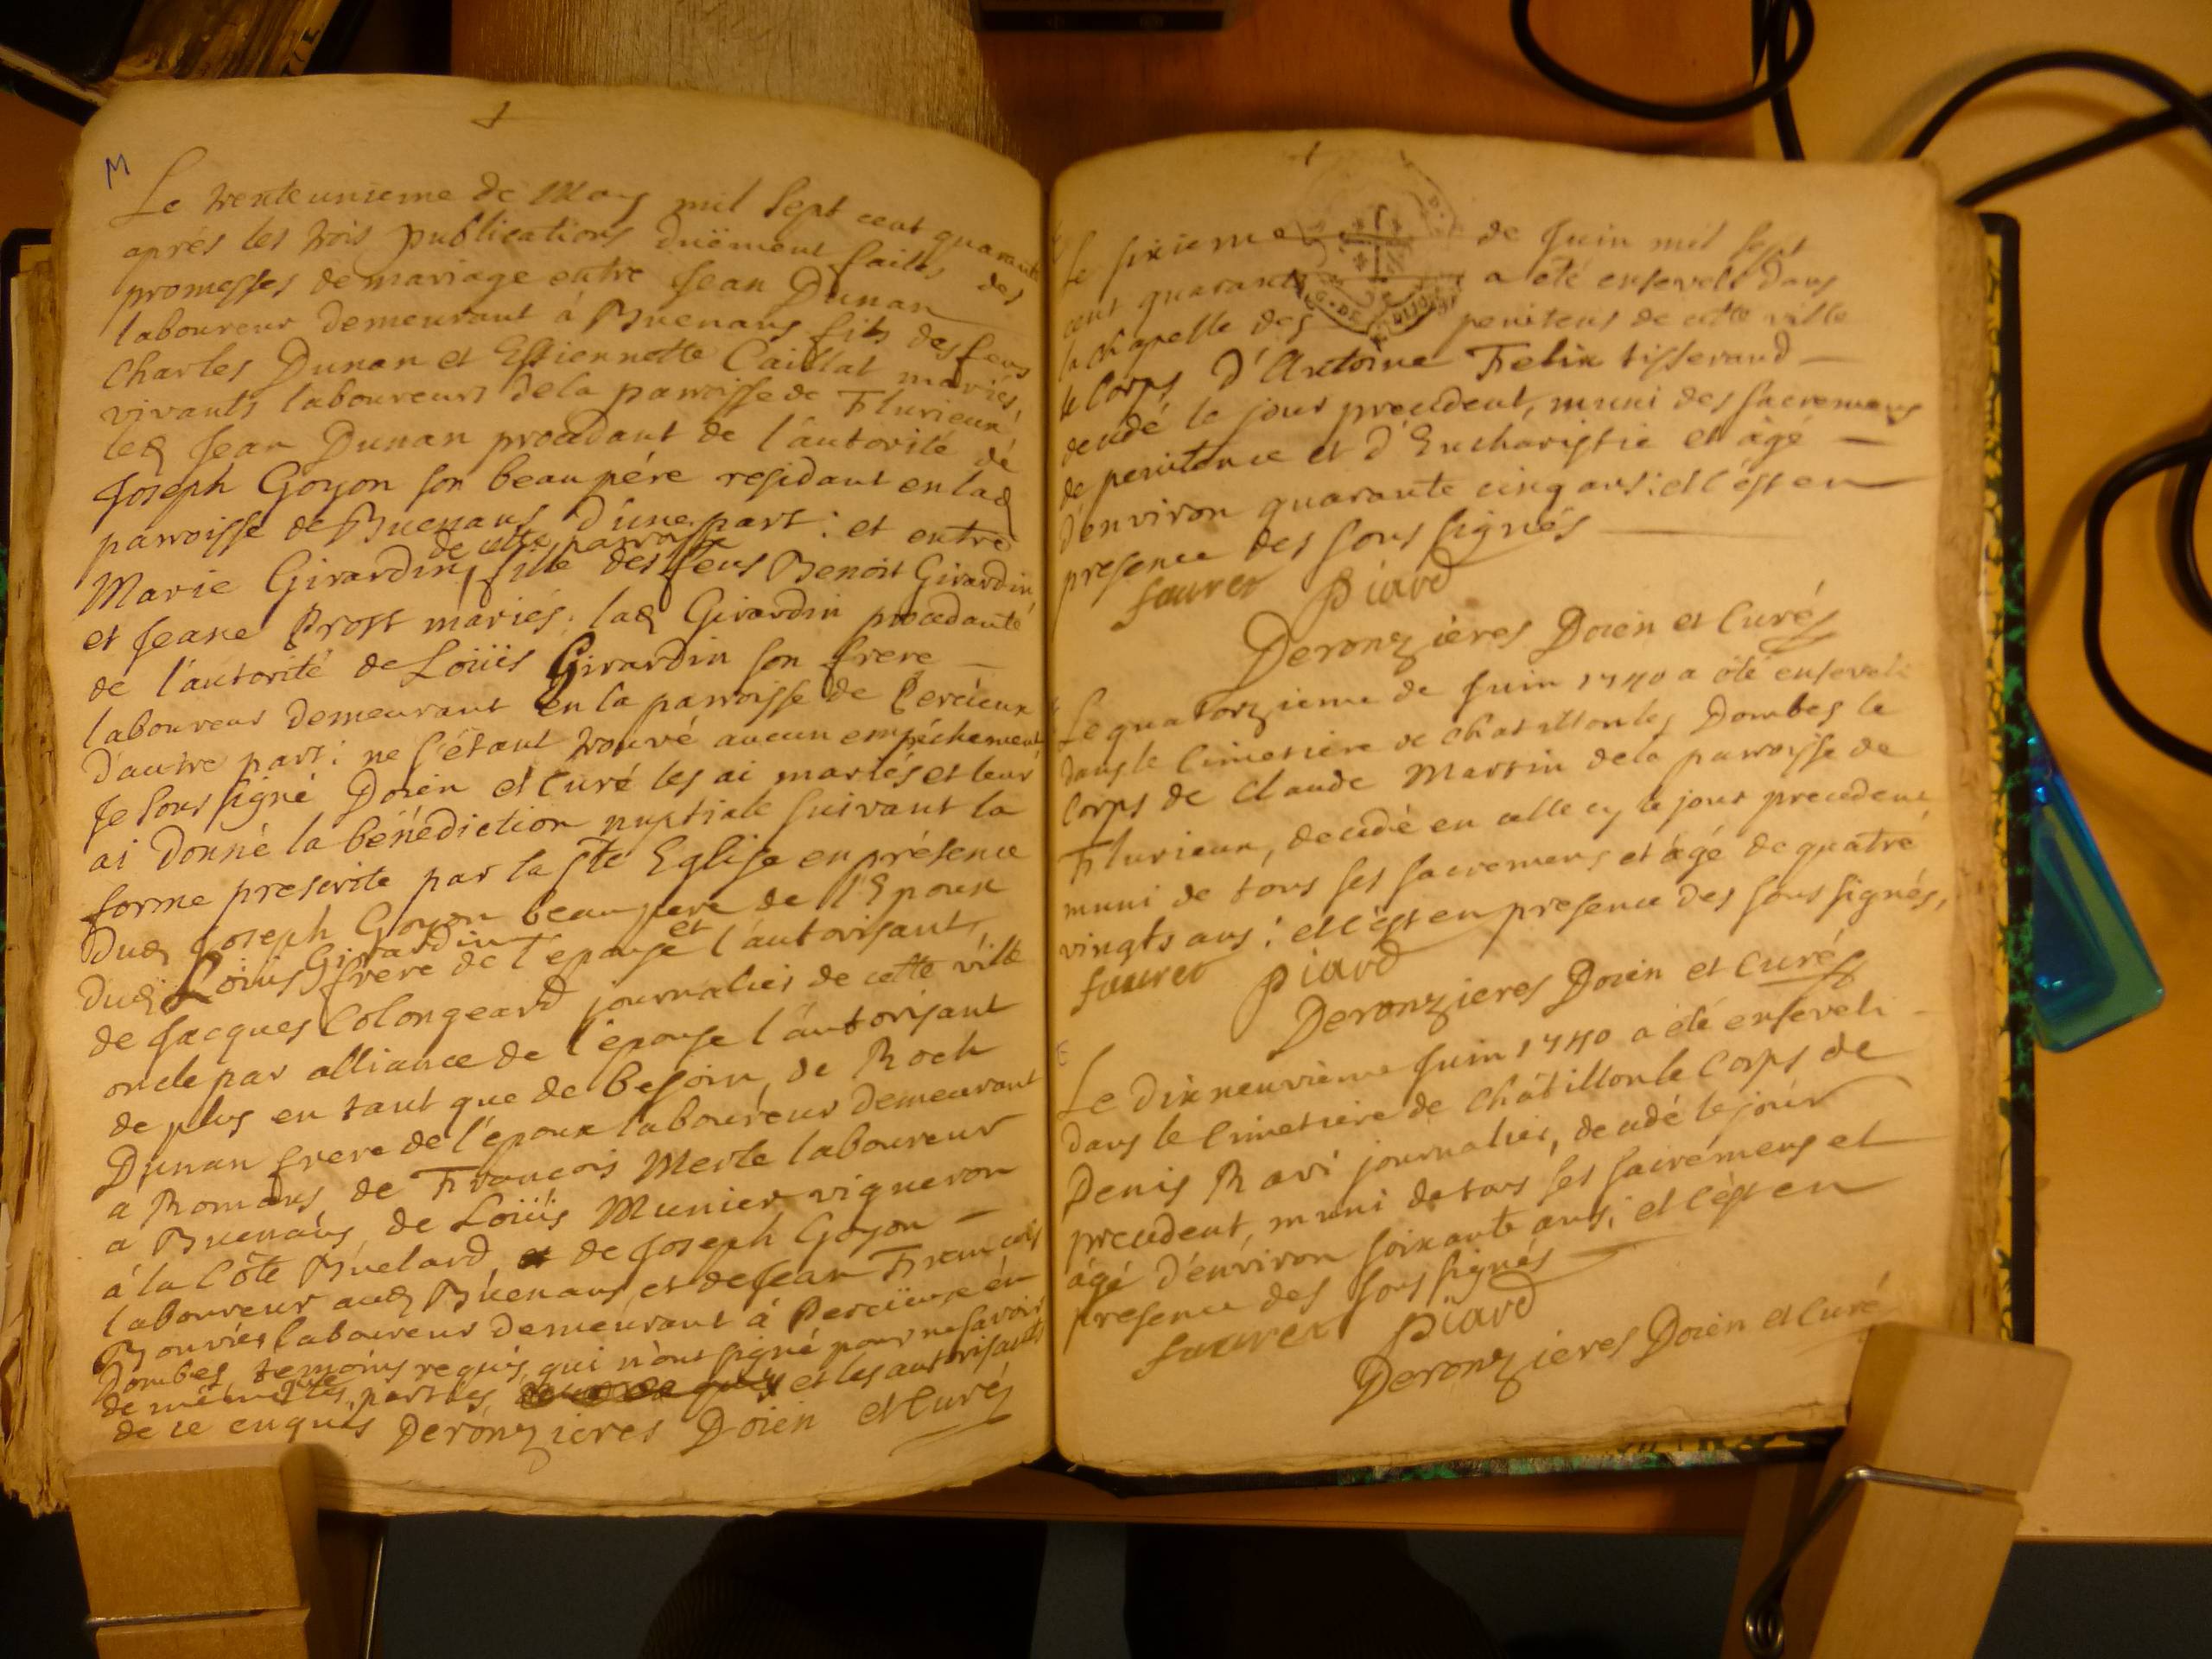 M
Le trente unieme de May mil sept cent quarante
aprés les trois publications duëment faites des
promesses de mariage entre Jean Dunan
laboureur demeurant á Buenans fils des feus
Charles Dunan et Estiennette Caillat mariés,
vivants laboureurs de la parroisse de Flurieux,
led Jean Dunan procedant de l'autorité de
Joseph Goyon son beaupére residant en lad
parroisse de Buenans d'une part : et entre
de cette parroisse
Marie Girardin, fille des feus Benoit Girardin
et Jeane Prost mariés, lad Girardin procedante
de l'autorité de Loüis Girardin son frere
laboureur demeurant en la parroisse de Percieux
d'autre part : ne s'étant trouvé aucun empéchement
Je sous signé Doien et Curé les ai mariés et leur
ai donné la bénédiction nuptiale suivant la
forme prescrite par la Ste Eglise en présence
dud Joseph Goyon beaupere de l'Epoux
Girardin et
dud Loüis frere de l'epouse l'autorisant,
de Jacques Colongeard journalier de cette ville
oncle par alliance de l'épouse l'autorisant
de plus en tant que de besoin, de Roch
Dunan frere de l'époux laboureur demeurant
a Romans, de François Merle laboureur
a Buenans, de Loüis Munier vigneron
á la Côte Buelard, et de Joseph Goyon
laboureur aud Buenans, et de Jean François
Bouvier laboureur demeurant á Percieux en
Dombes, temoins requis, qui n'ont signé pour ne savoir
de même que les parties, et les autorisants
de ce enquis Deronzieres Doien et Curé
Le sixieme de Juin mil sept
cent quarante a été enseveli dans
la chapelle des penitens de cette ville
le Corps d'Antoine Felix tisserand
decedé le jour precedent, muni des sacremens
de penitence et d'Eucharistie et âgé
d'environ quarante cinq ans : et c'ést en
presence des sous signés
faurer Piard
Deronzieres Doien et Curé
Le quatorzieme de Juin 1740 a été enseveli
dans le Cimetiere de Chatillon les Dombes le
Corps de Claude Martin de la parroisse de
Flurieux, decedé en celle cy le jour precedent
muni de tous ses sacremens et âgé de quatre
vingts ans : et c'ést en presence des sous signés,
faurer Piard
Deronzieres Doien et Curé
Le dix neuvieme Juin 1740 a été enseveli
dans le Cimetiere de Châtillon le Corps de
Denis Ravi journalier, decedé le jour
precedent, muni de tous ses sacrémens et
âgé d'environ soixante ans ; et c'ést en
presence des sous signés
faurer Piard
Deronzieres Doien et Curé